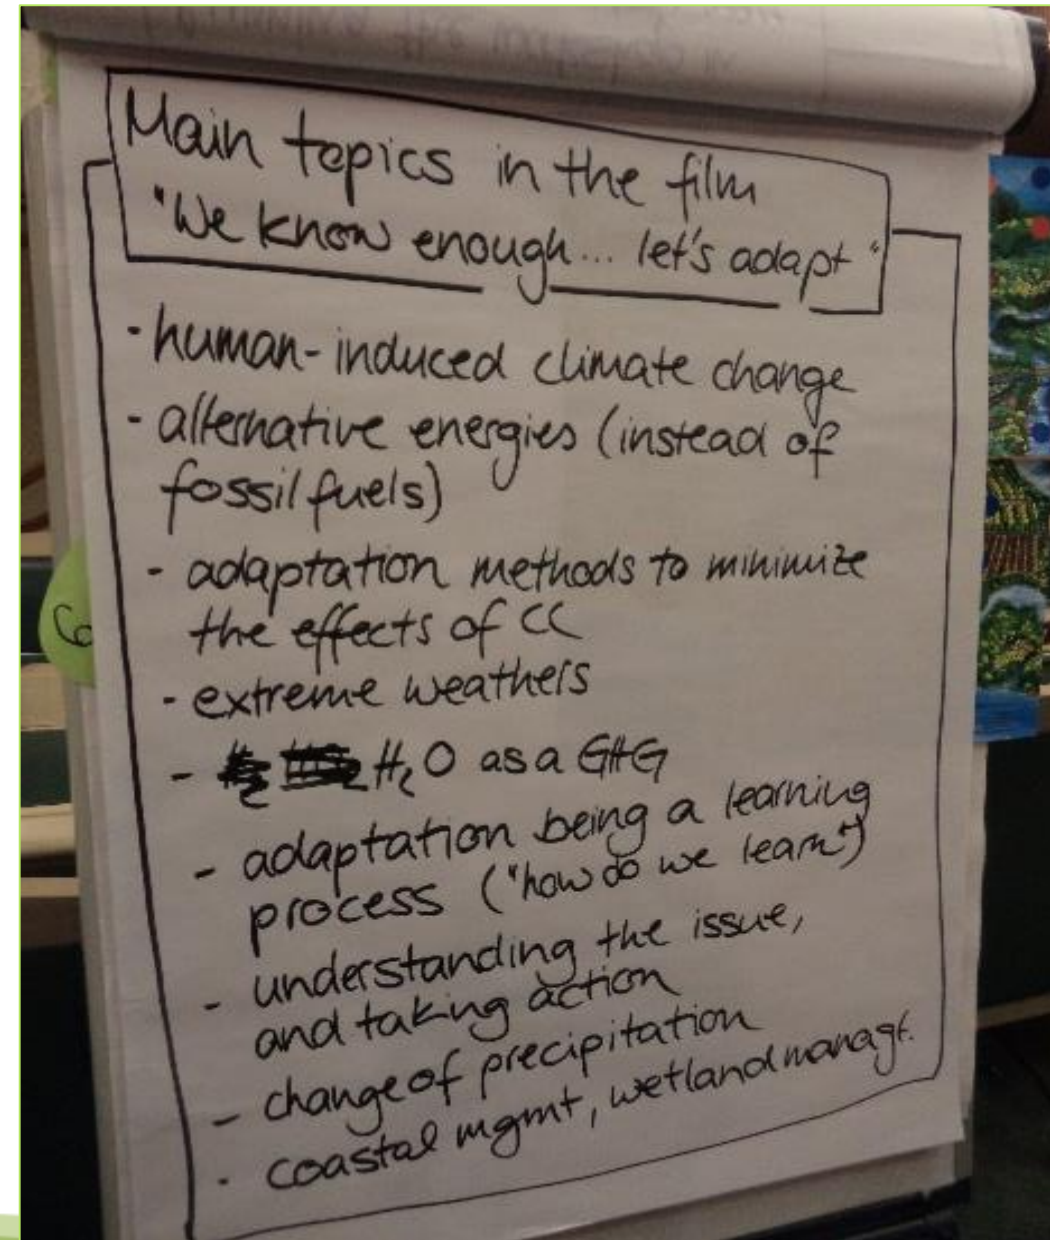 Main topics in the film
"We know enough... let's adapt"
- human-induced climate change
- alternative energies (instead of
fossil fuels)
- adaptation methods to minimize
the effects of CC
- extreme weathers
- H₂O as a GHG
- adaptation being a learning
process ("how do we learn")
- understanding the issue,
and taking action
- change of precipitation
- coastal mgmt, wetland managt.
Co